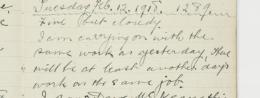 Tuesday Feb. 12, 1918. 1289
Fine but cloudy.
I am carrying on with the
same work as yesterday, there
will be at least another day's
work on the same job.